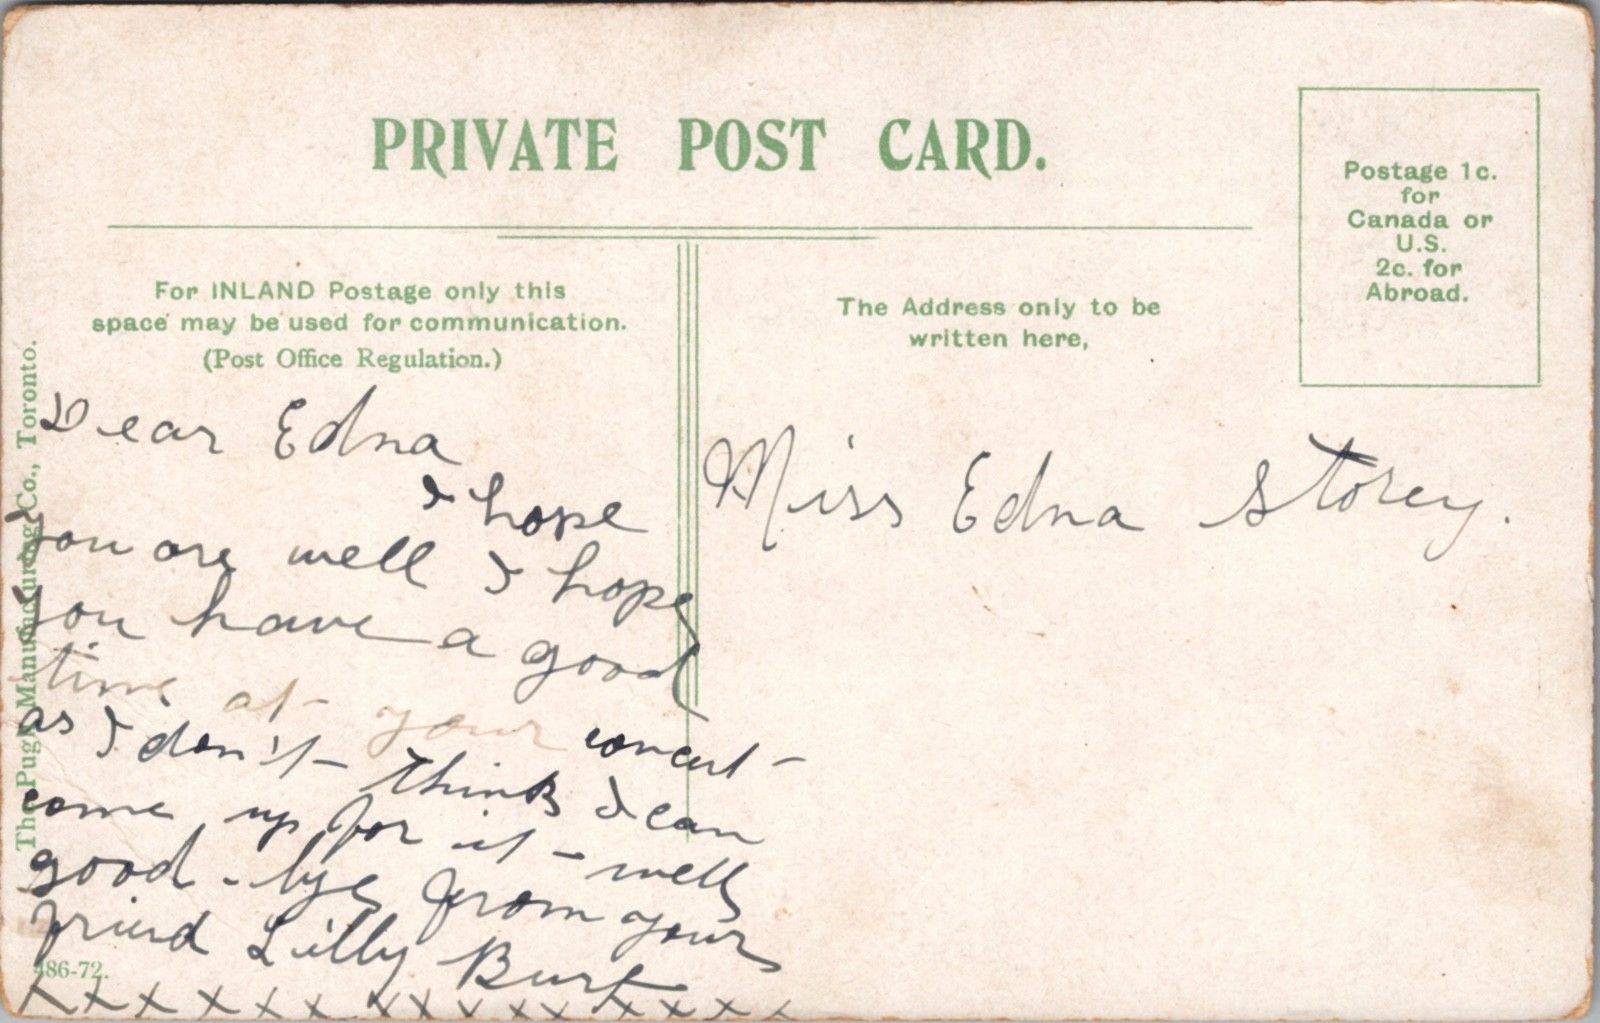 PRIVATE POST CARD.
Postage 1c.
for
Canada or
U.S.
2c. for
Abroad.
For INLAND Postage only this
space may be used for communication.
(Post Office Regulation.)
The Address only to be
written here,
The Pugh Manufacturing Co., Toronto.
Dear Edna
I hope
you are well I hope
you have a good
time at your concert -
as I don't think I can
come up for it - well
good - bye from your
friend Lilly Burt
486-72.
x x x x x x x x x x x x x x x
Miss Edna Storey.